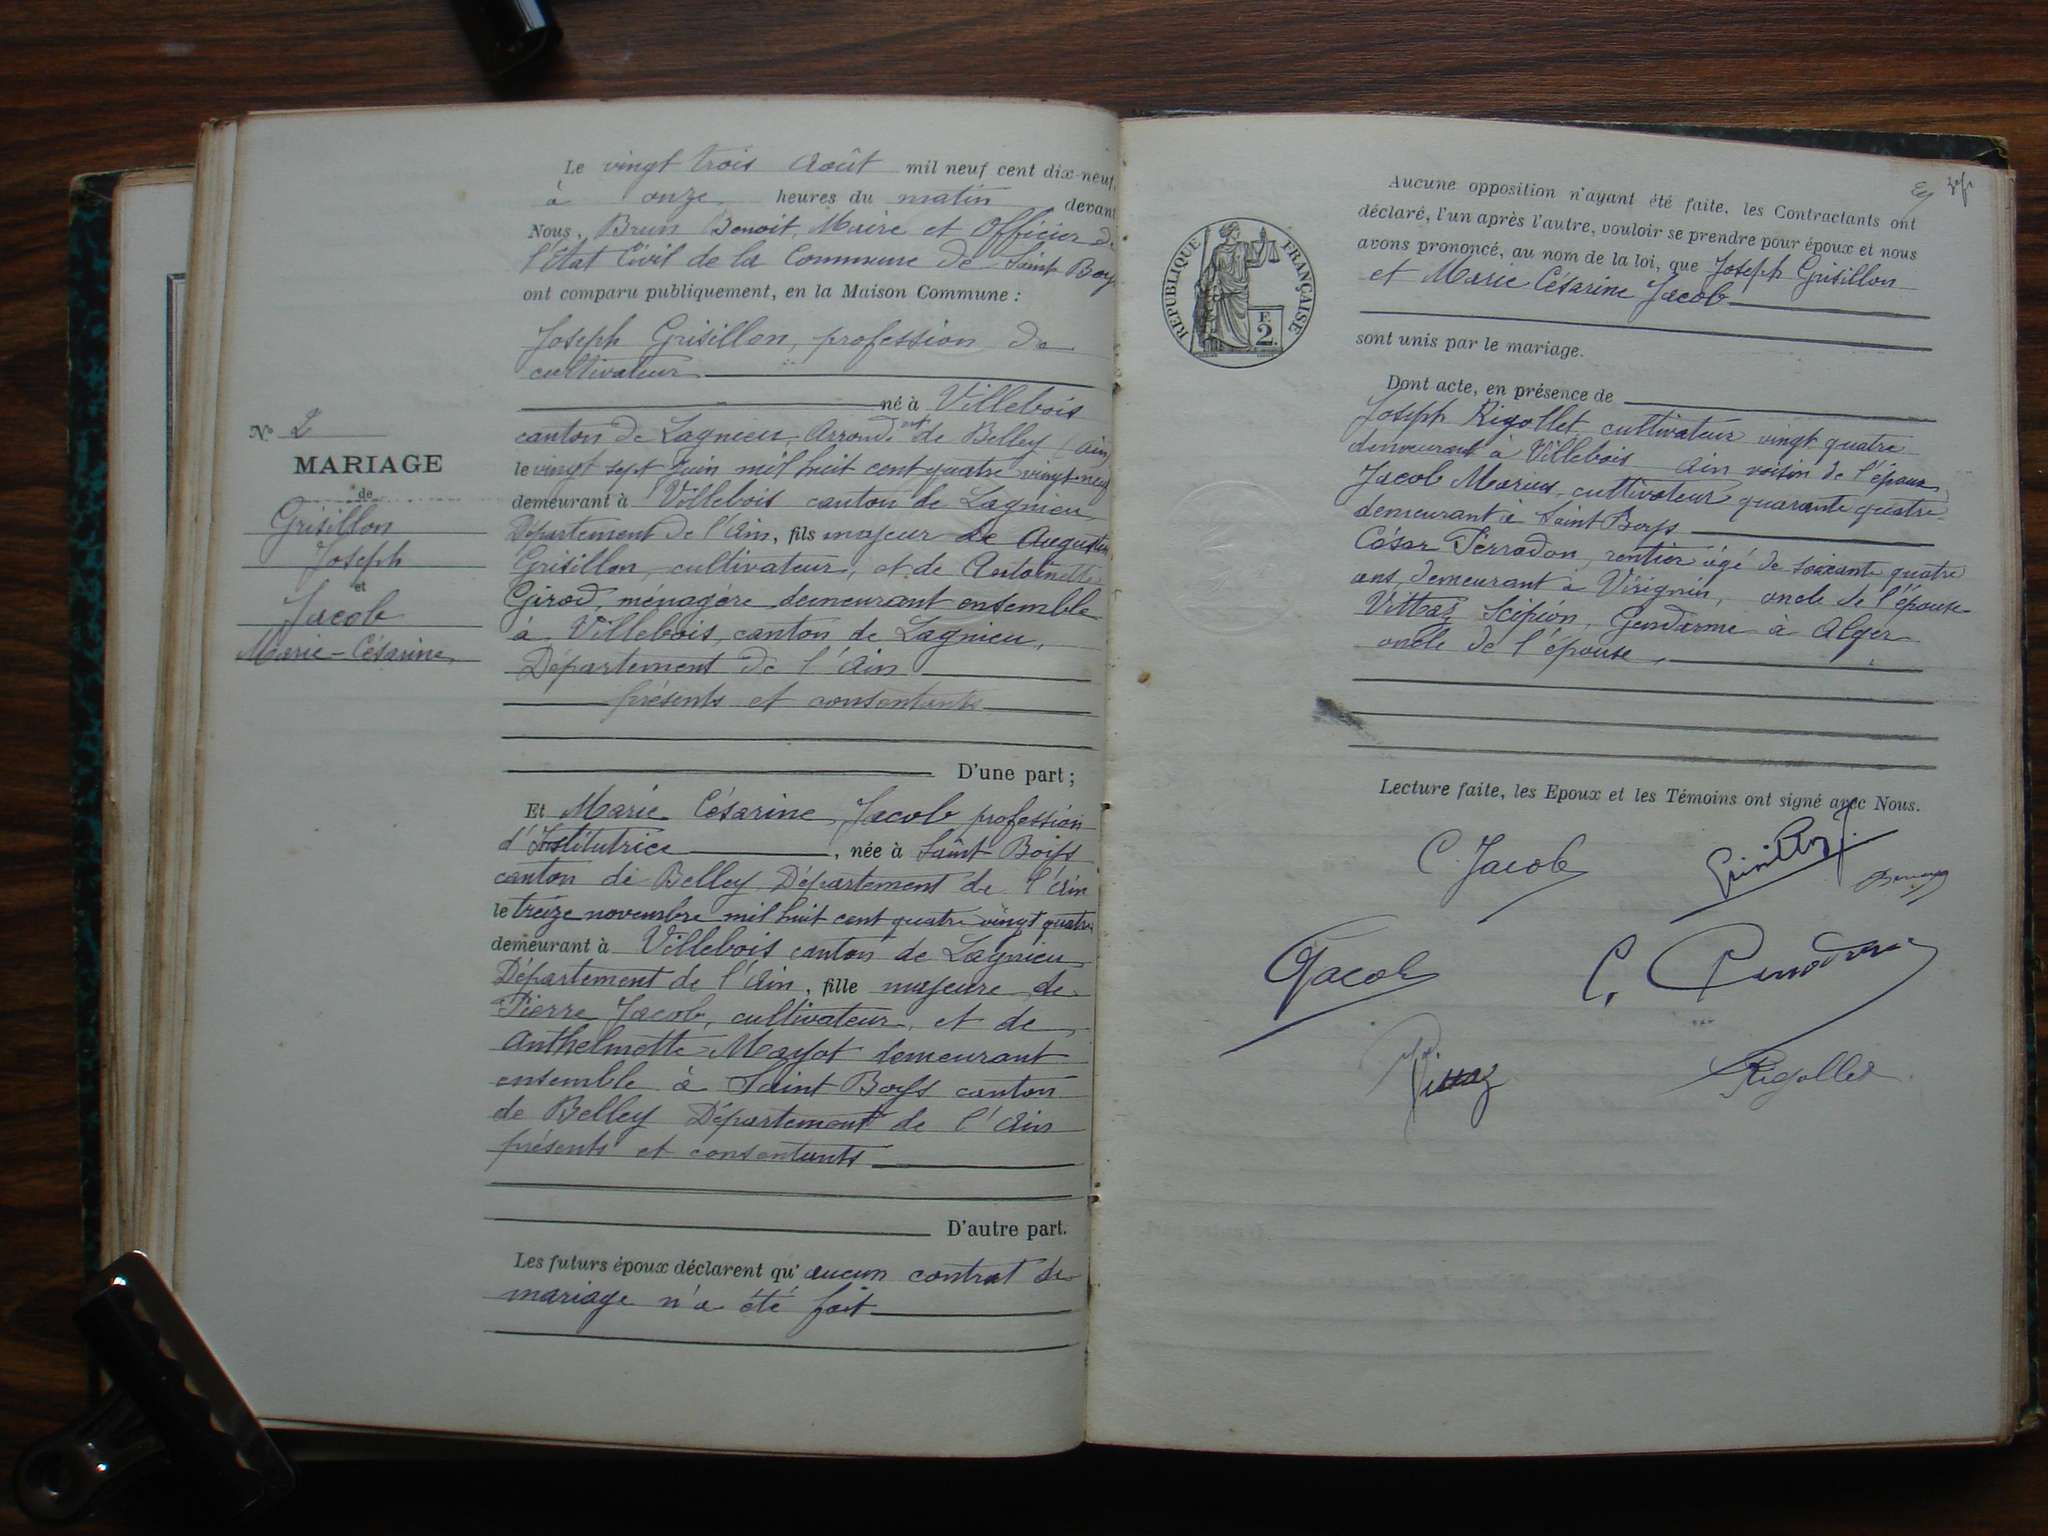 Le vingt trois Août mil neuf cent dix-neuf,
à onze heures du matin devant
Nous, Brun Benoit, Maire et Officier de
l'État Civil de la Commune de Saint Boys
ont comparu publiquement, en la Maison Commune :
Joseph Grisillon, profession de
cultivateur
né à Villebois
canton de Lagnieu, Arrondt de Belley (Ain)
le vingt sept Juin mil huit cent quatre vingt-neuf
demeurant à Villebois canton de Lagnieu
Département de l'Ain, fils majeur de Augustin
Grisillon, cultivateur, et de Antoinette
Girod, ménagère demeurant ensemble
à Villebois, canton de Lagnieu,
Département de l'Ain
présents et consentants
D'une part ;
Et Marie Césarine Jacob profession
d'Institutrice, née à Saint Boys
canton de Belley Département de l'Ain
le treize novembre mil huit cent quatre vingt quatre
demeurant à Villebois canton de Lagnieu
Département de l'Ain, fille majeure de
Pierre Jacob, cultivateur, et de
Anthelmette Mayot demeurant
ensemble à Saint Boys canton
de Belley Département de l'Ain
présents et consentants
D'autre part.
Les futurs époux déclarent qu'aucun contrat de
mariage n'a été fait
N° 2
MARIAGE
de
Grisillon
Joseph
et
Jacob
Marie-Césarine
Aucune opposition n'ayant été faite, les Contractants ont
déclaré, l'un après l'autre, vouloir se prendre pour époux et nous
avons prononcé, au nom de la loi, que Joseph Grisillon
et Marie Césarine Jacob
sont unis par le mariage.
Dont acte, en présence de
Joseph Rigollet cultivateur vingt quatre
demeurant à Villebois Ain voisin de l'époux
Jacob Marius, cultivateur quarante quatre
demeurant à Saint Boys
César Perradon, rentier âgé de soixante quatre
ans, demeurant à Virignin, oncle de l'épouse
Vittaz Scipion, Gendarme à Alger
oncle de l'épouse,
Lecture faite, les Epoux et les Témoins ont signé avec Nous.
C. Jacob
Jacob
Vittaz
Rigollet
RÉPUBLIQUE FRANÇAISE
F.
2.